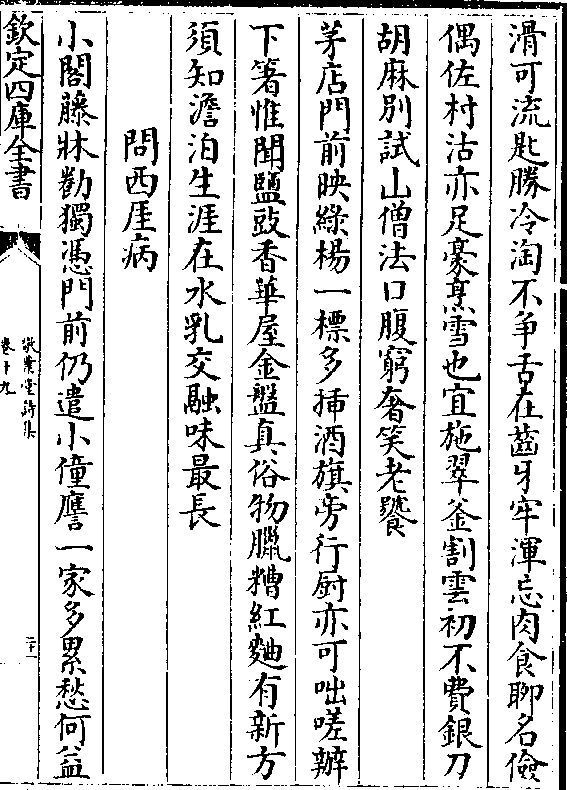 滑可流匙勝冷淘不争舌在齒牙牢渾忘肉食聊名儉
偶佐村沽亦足豪烹雪也宜施翠釜割雲初不費銀刀
胡麻別試山僧法口腹窮奢笑老饕
茅店門前映綠楊一標多揷酒旗旁行厨亦可咄嗟辦
下箸惟聞鹽豉香華屋金盤真俗物臘糟紅麯有新方
須知澹泊生涯在水乳交融味最長
問西厓病
小閣藤牀勸獨憑門前仍遣小僮譍一家多累愁何益
欽定四庫全書
敬業堂詩集
卷十九
二十一